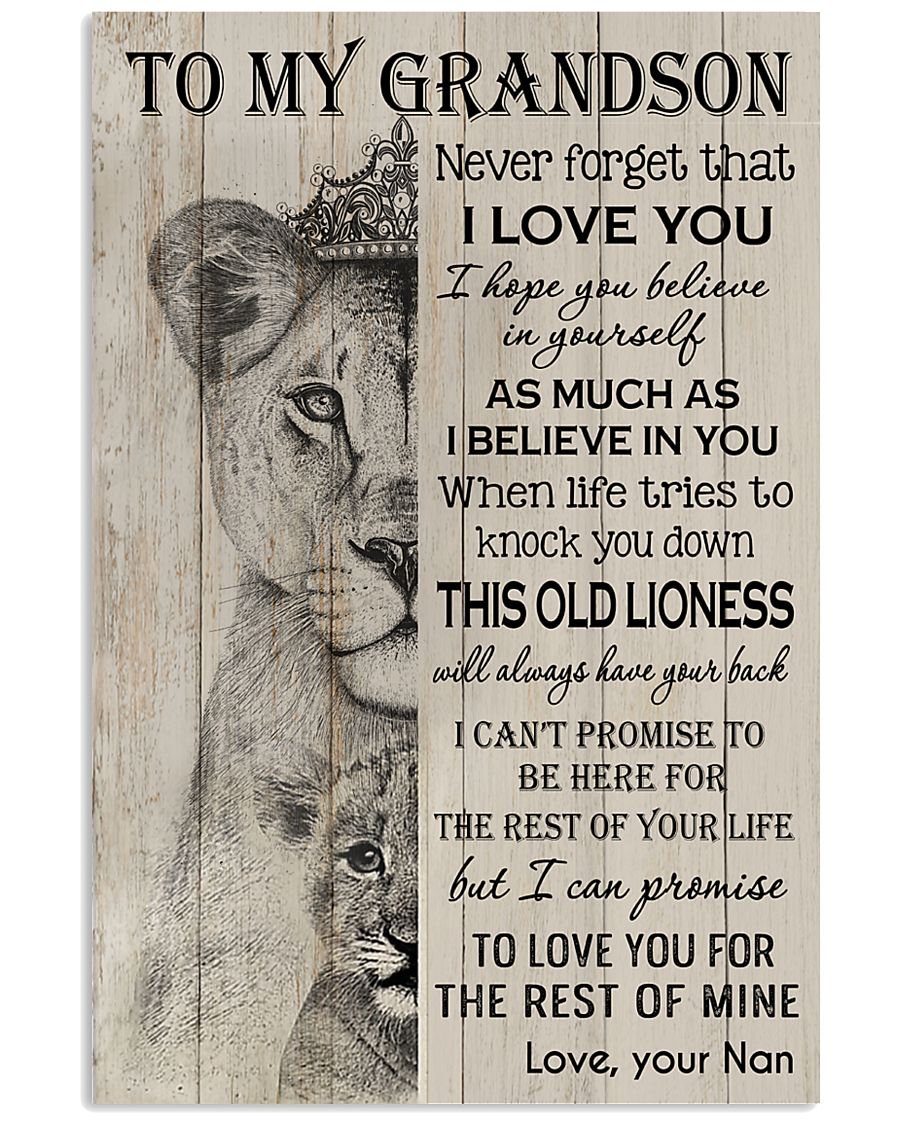 TO MY GRANDSON
Never forget that
I LOVE YOU
I hope you believe
in yourself
AS MUCH AS
I BELIEVE IN YOU
When life tries to
knock you down
THIS OLD LIONESS
will always have your back
I CAN'T PROMISE TO
BE HERE FOR
THE REST OF YOUR LIFE
but I can promise
TO LOVE YOU FOR
THE REST OF MINE
Love, your Nan